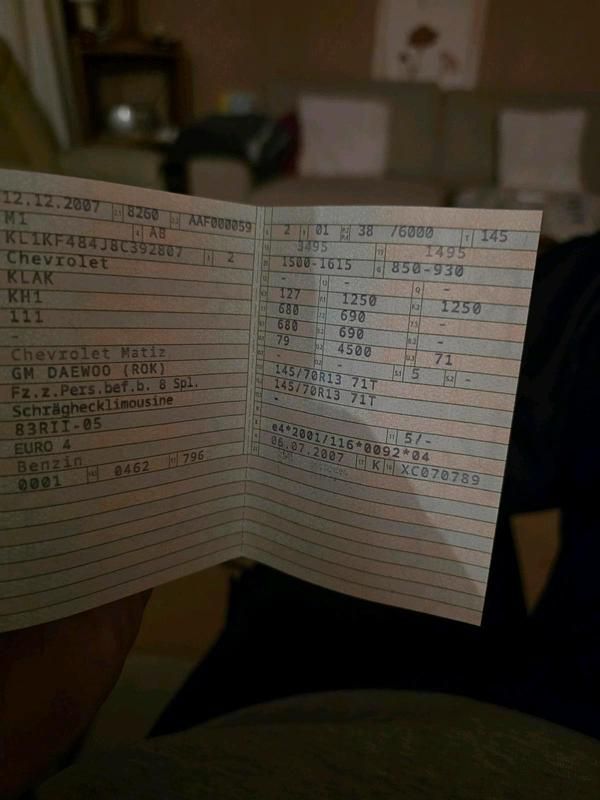 12.12.2007 8260 AAF000059
M1 AB
KL1KF484J8C392807 2
Chevrolet
KLAK
KH1
111
-
Chevrolet Matiz
GM DAEWOO (ROK)
Fz.z.Pers.bef.b. 8 Spl.
Schräghecklimousine
83RII-05
EURO 4
Benzin
0001 0462 796
2 01 38 /6000 145
3495 1495
1500-1615 850-930
- - -
127 1250 1250
680 690 -
680 690 -
79 4500 71
- - 5 -
145/70R13 71T
145/70R13 71T
-
5/-
e4*2001/116*0092*04
06.07.2007 K XC070789